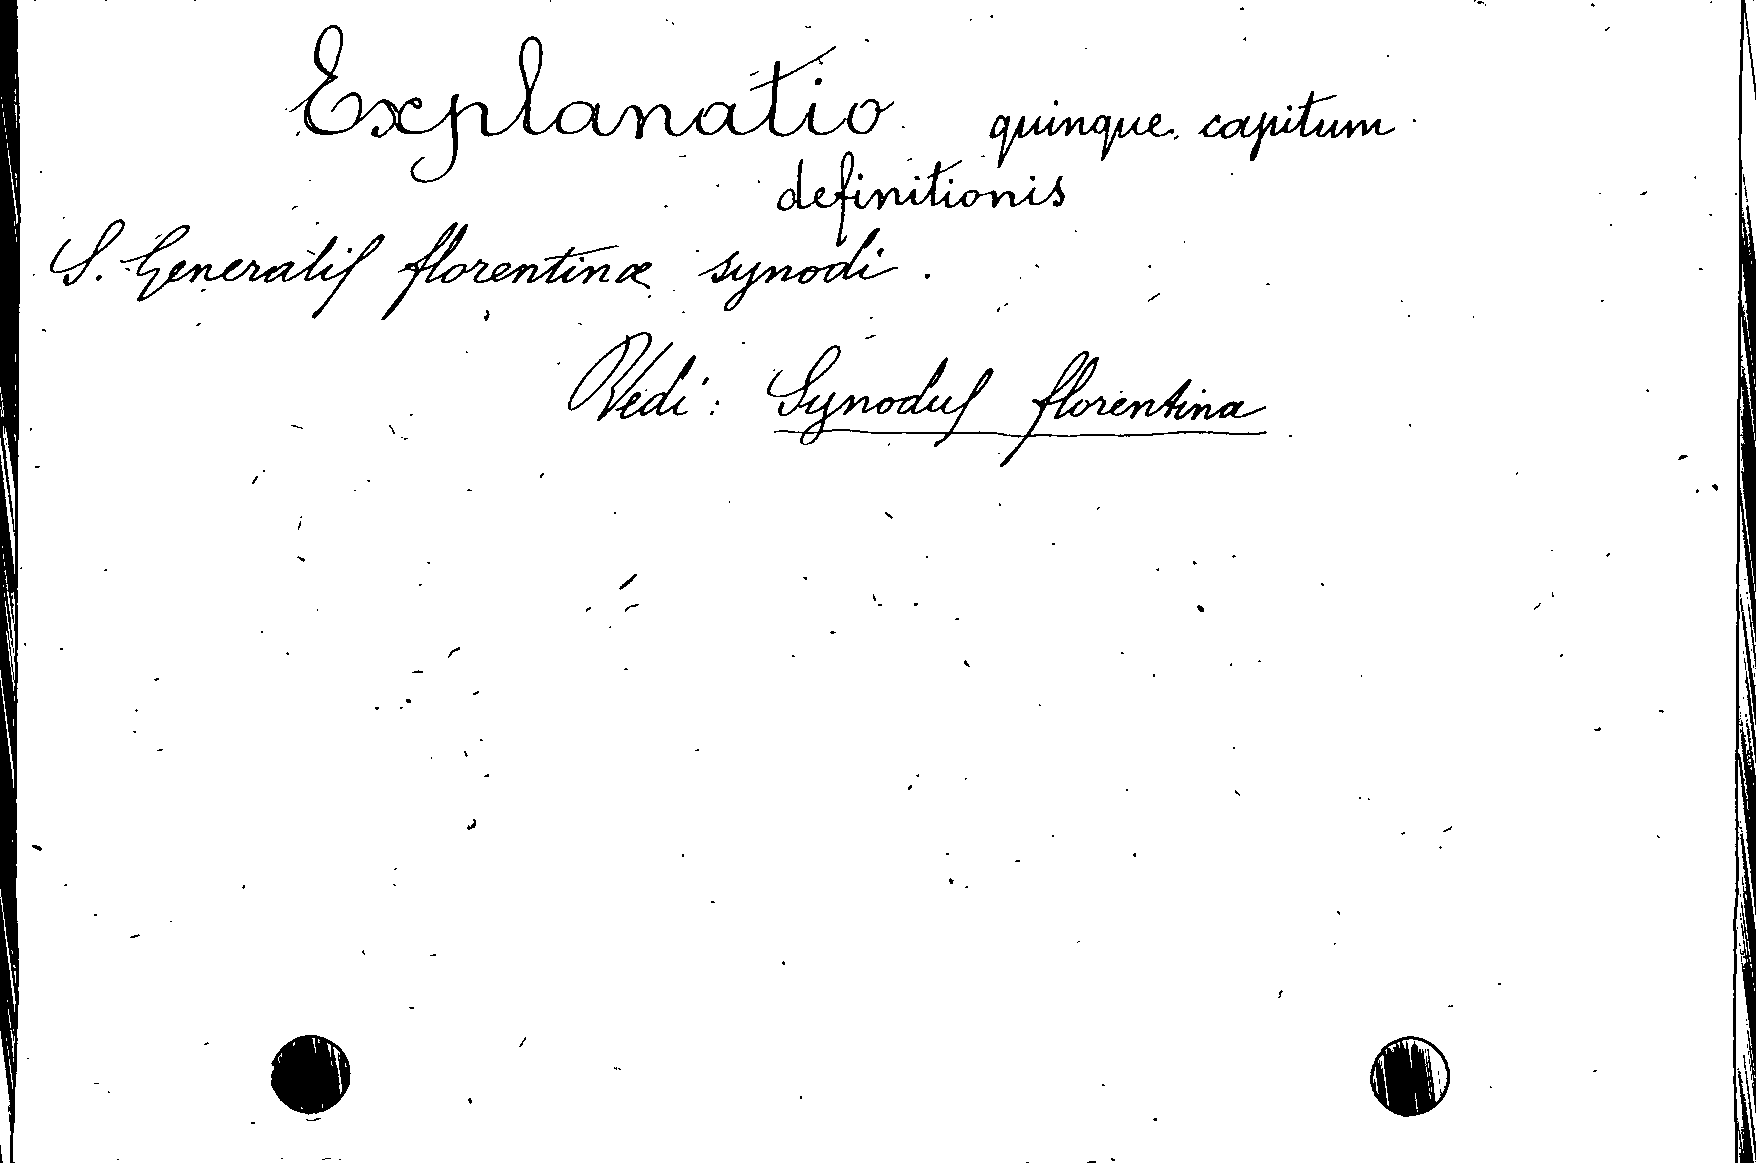 Explanatio quinque capitum
definitionis
S. Generalis florentinæ synodi.
Vedi: Synodus florentina